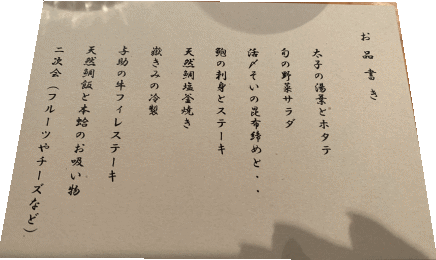 お品書き
太子の湯葉とホタテ
旬の野菜サラダ
活〆そいの昆布締めと・・
鮑の刺身とステーキ
天然鯛塩釜焼き
嶽きみの冷製
与助の牛フィレステーキ
天然鯛飯と本蛤のお吸い物
二次会（フルーツやチーズなど）